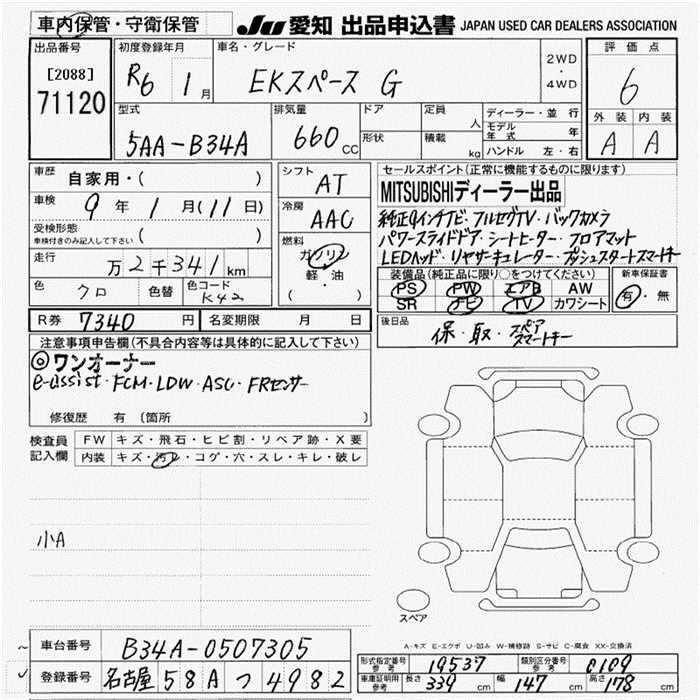 車内保管・守衛保管
JU 愛知 出品申込書 JAPAN USED CAR DEALERS ASSOCIATION
出品番号
[2088]
71120
初度登録年月
R6 1月
車名・グレード
EKスペース G
2WD
・
4WD
評価点
6
外装 内装
A A
型式
5AA-B34A
排気量
660 CC
ドア
形状
定員 人
積載 kg
ディーラー・並行
モデル年式 年
ハンドル 左・右
車歴 自家用・( )
車検 9年 1月(11日)
受検形態
車検付きのみ記入して下さい ( )
走行 万2千341km
色 クロ 色替 色コード K42
シフト AT
冷房 AAC
燃料 ガソリン
軽・油
( )
セールスポイント(正常に機能するものに限ります)
MITSUBISHIディーラー出品
純正9インチナビ・フルセグTV・バックカメラ
パワースライドドア・シートヒーター・フロアマット
LEDヘッド・リヤサーキュレーター・プッシュスタートスマートキー
装備品(純正品に限り○をつけてください)
PS PW エアB AW
SR ナビ TV カワシート
新車保証書
有・無
R券 7340円 名変期限 月 日
後日品
保・取・スペアスマートキー
注意事項申告欄(不具合内容等は具体的に記入して下さい)
◎ワンオーナー
e-assist・FCM・LDW・ASC・FRセンサー
修復歴 有 (箇所 )
検査員記入欄
FW キズ・飛石・ヒビ割・リペア跡・X要
内装 キズ・汚レ・コゲ・穴・スレ・キレ・破レ
小A
スペア
A-キズ E-エクボ U-凹み W-補修跡 S-サビ C-腐食 XX-交換済
車台番号 B34A-0507305
登録番号 名古屋 58A つ 4982
形式指定番号 参考 19537 類別区分番号 参考 0109
車庫証明用 参考 長さ 339 cm 幅 147 cm 高さ 178 cm